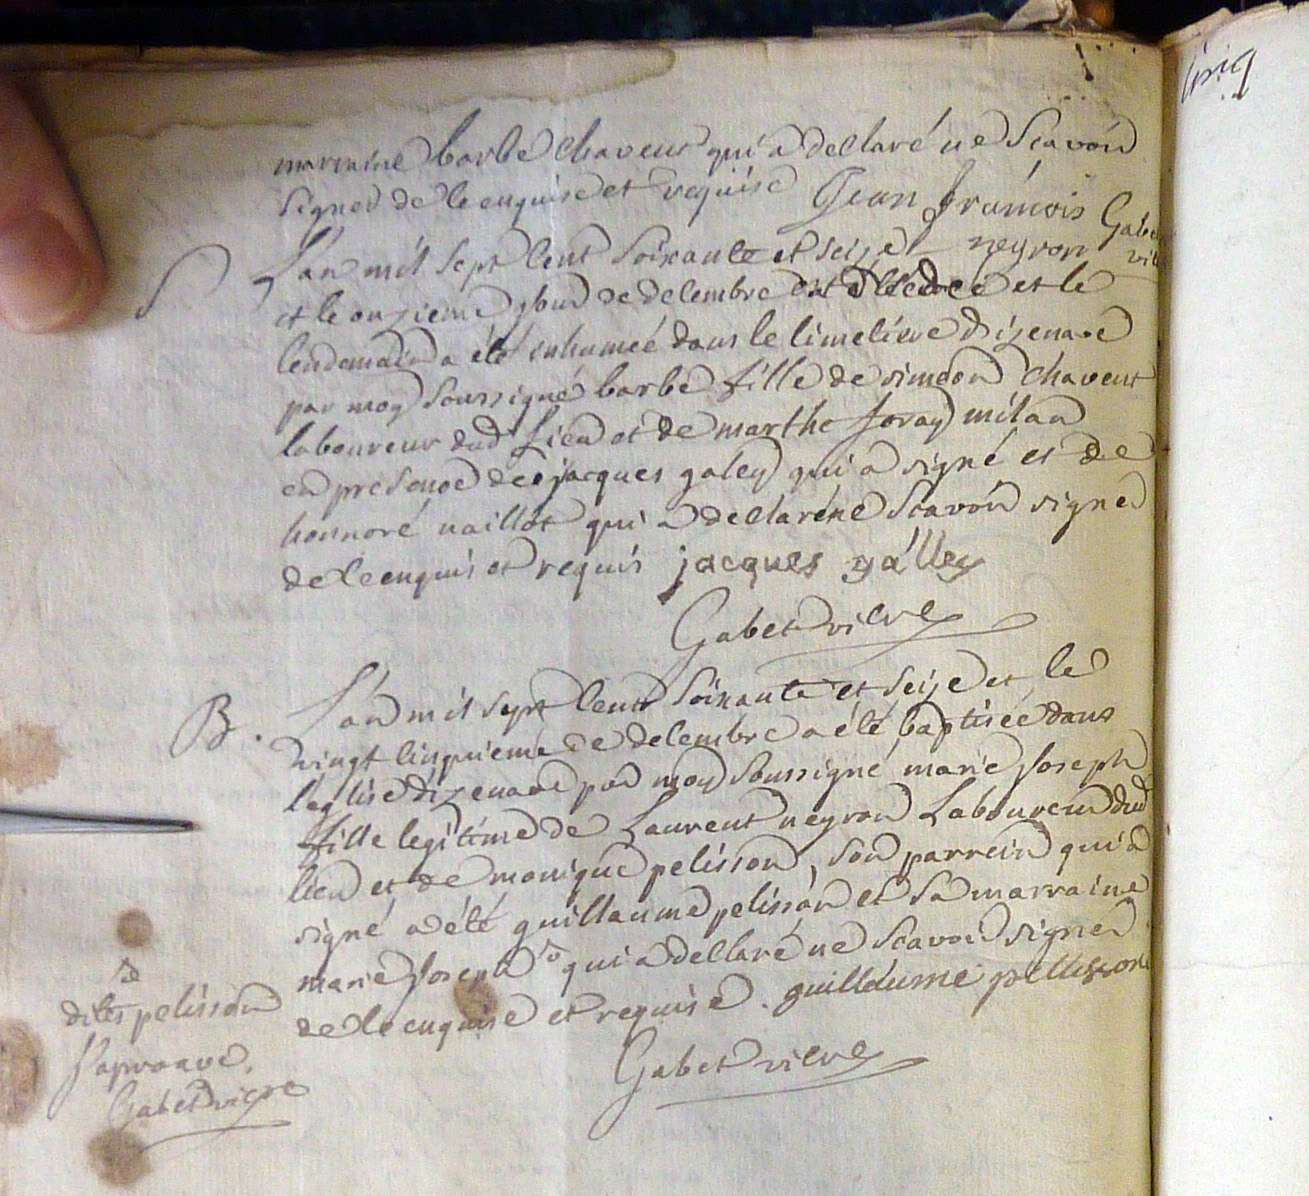 marraine barbe chaveut qui a declaré ne scavoir
signer de ce enquise et requise Jean françois Gabet
neyron vic
S. L'an mil sept cent soixante et seize
et le onzieme jour de decembre est decedée et le
lendemain a été inhumée dans le cimetiere d'izenave
par moy soussigné barbe fille de simeon chaveut
laboureur dud. lieu et de marthe foray milan
en presence de jacques galey qui a signé et de
honnoré vaillot qui a declaré ne scavoir signer
de ce enquis et requis jacques galley
Gabet vicre
B. L'an mil sept cent soixante et seize et le
vingt cinquieme de decembre a été baptisée dans
l'eglise d'izenave par moy soussigné marie joseph
fille legitime de Laurent neyron Laboureur dud
lieu et de monique pelisson, son parrein qui a
signé a été guillaume pelisson et sa marraine
marie joseph qui a declaré ne scavoir signer
de ce enquise et requise. guillaume pellisson
Gabet vicre
dites pelisson
j'aprouve.
Gabet vicre